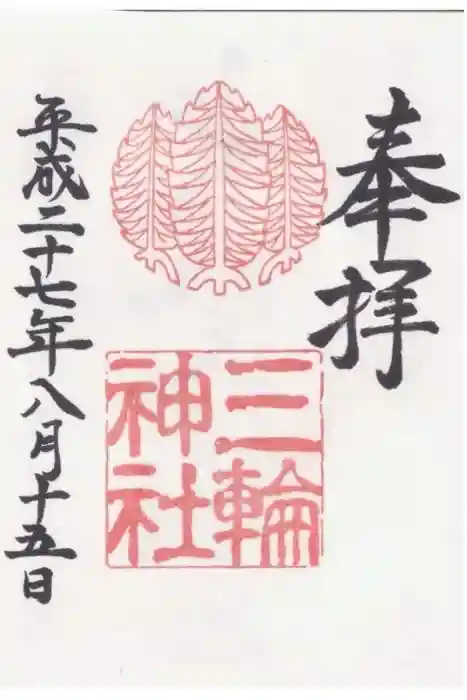 奉拝
三輪
神社
平成二十七年八月十五日